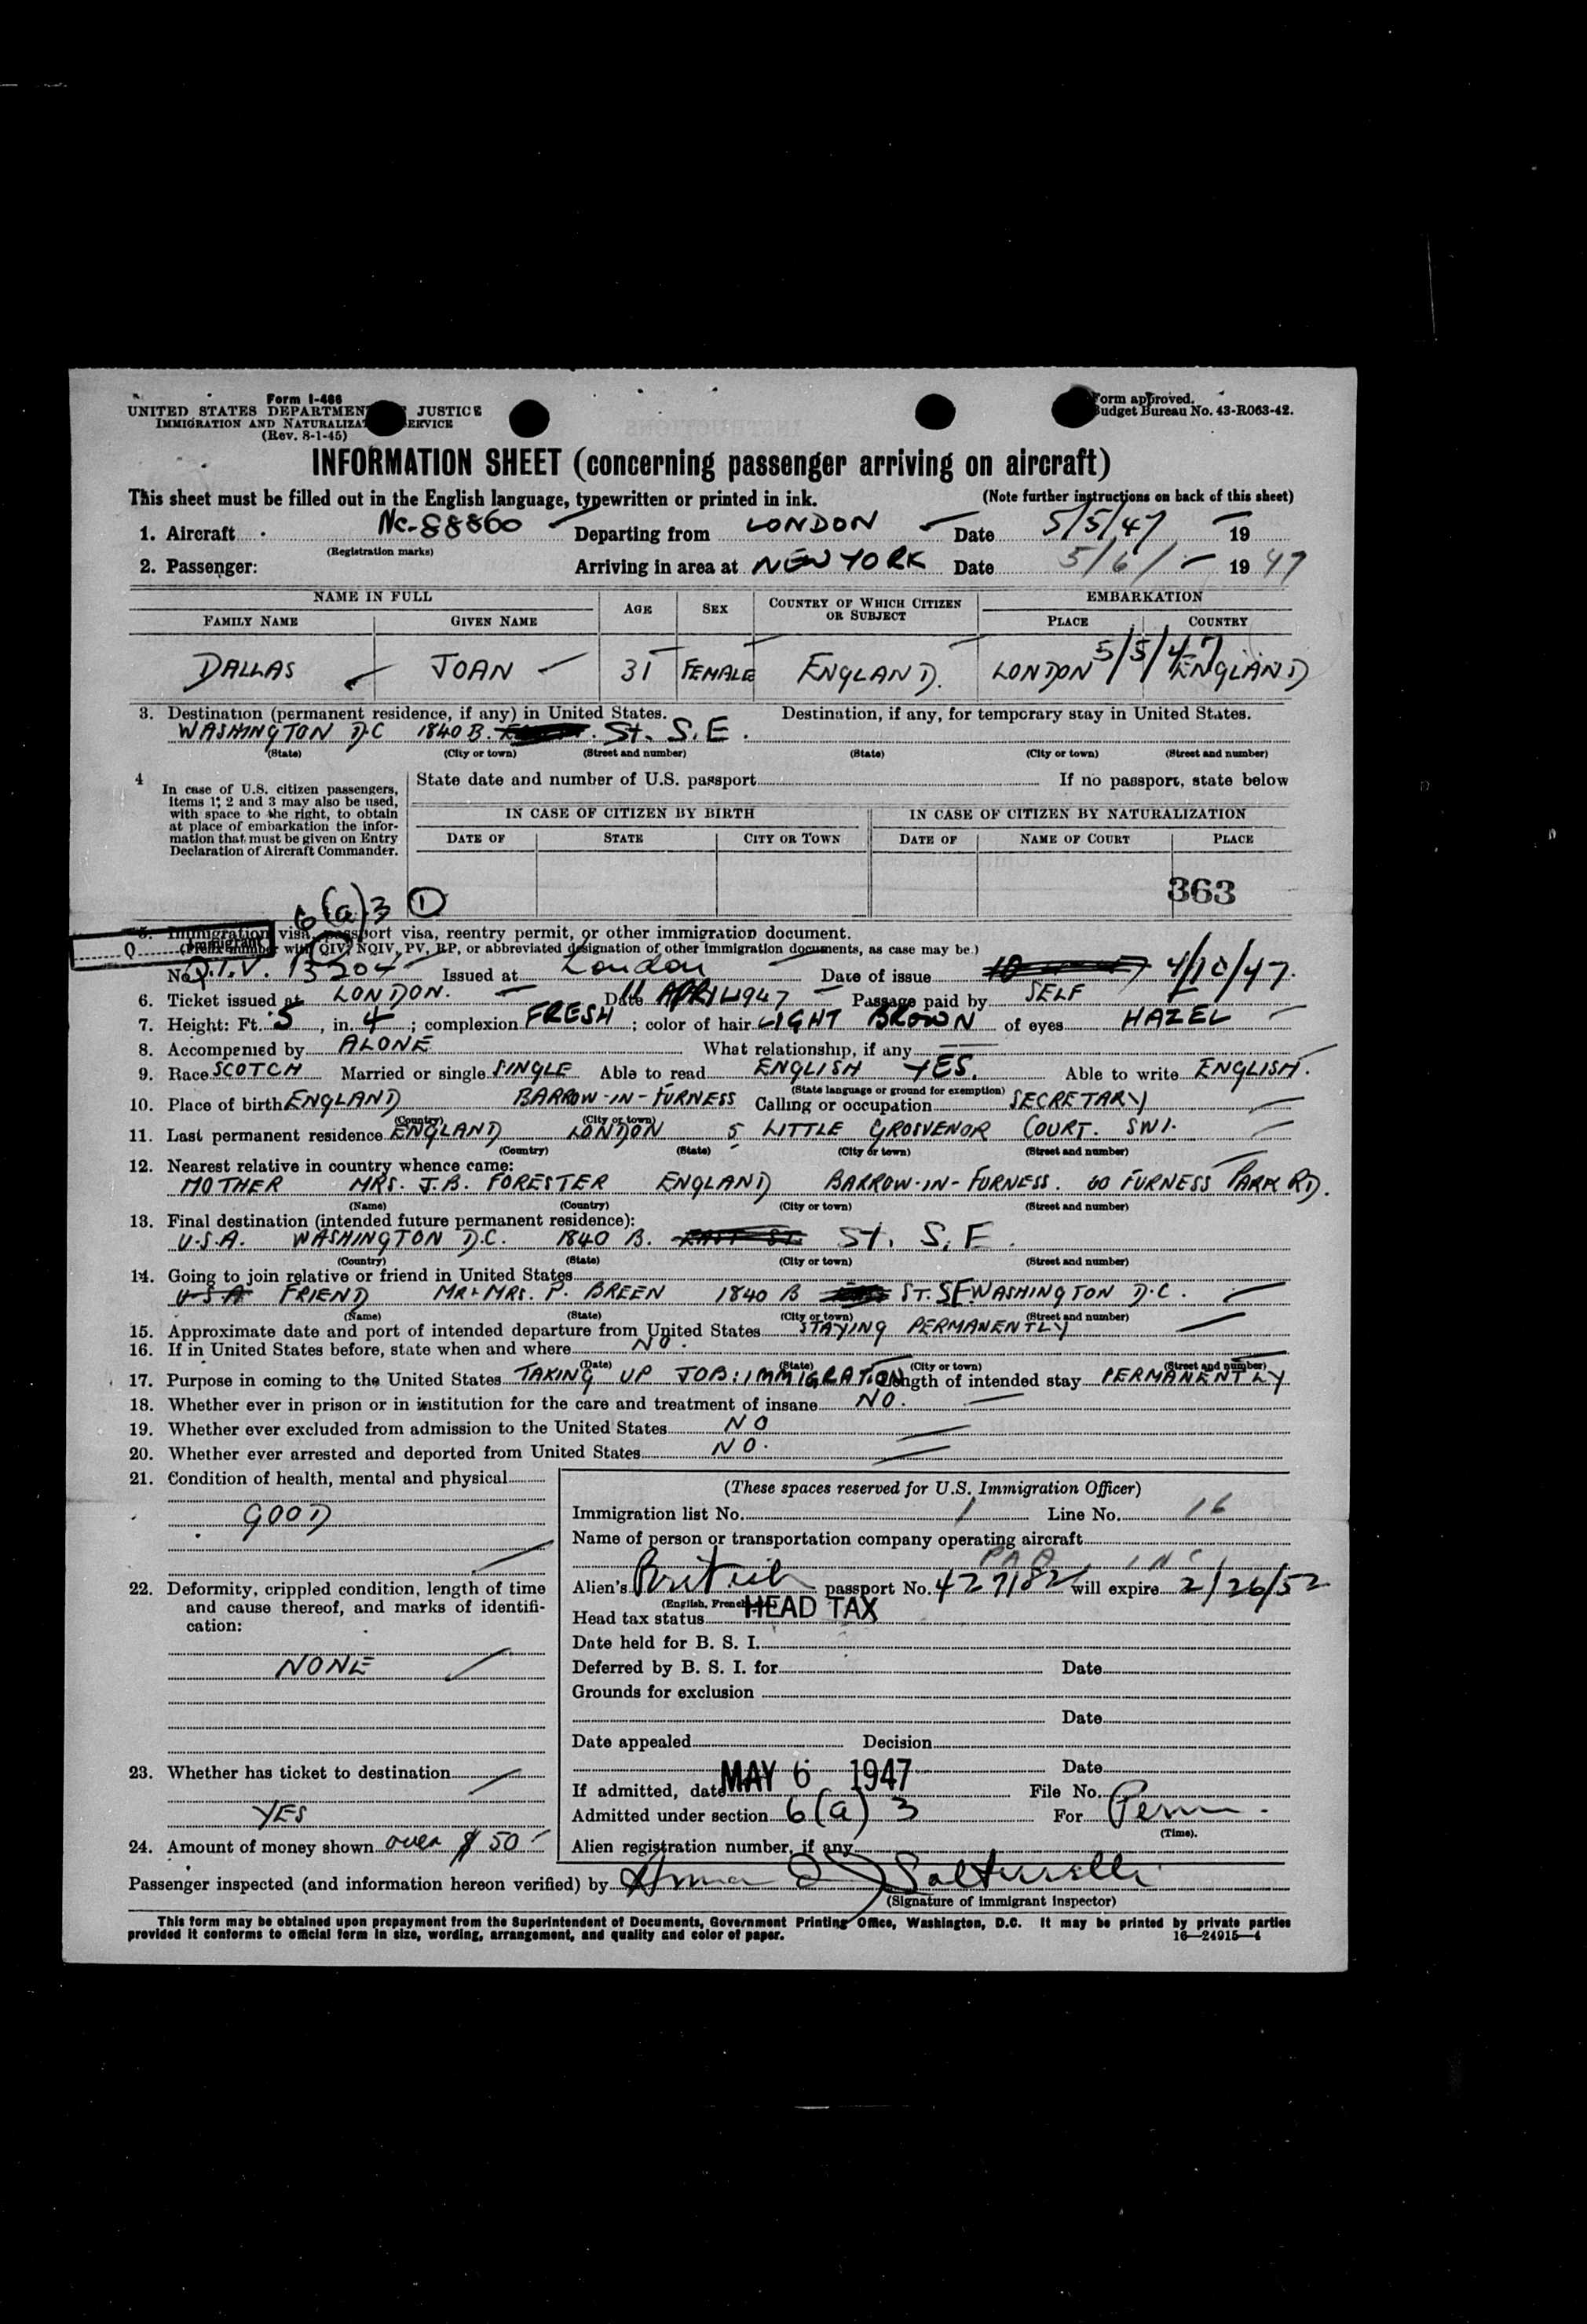 Form I-466
UNITED STATES DEPARTMENT JUSTICE
IMMIGRATION AND NATURALIZAT SERVICE
(Rev. 8-1-45)
Form approved.
Budget Bureau No. 43-R063-42.
INFORMATION SHEET (concerning passenger arriving on aircraft)
This sheet must be filled out in the English language, typewritten or printed in ink. (Note further instructions on back of this sheet)
1. Aircraft NC-88860 Departing from LONDON Date 5/5/47 19
(Registration marks)
2. Passenger: Arriving in area at NEW YORK Date 5/6/ 19 47
NAME IN FULL AGE SEX COUNTRY OF WHICH CITIZEN OR SUBJECT EMBARKATION
FAMILY NAME GIVEN NAME PLACE COUNTRY
DALLAS JOAN 31 FEMALE ENGLAND. LONDON 5/5/47 ENGLAND
3. Destination (permanent residence, if any) in United States. Destination, if any, for temporary stay in United States.
WASHINGTON D.C 1840 B. St. S.E.
(State) (City or town) (Street and number) (State) (City or town) (Street and number)
4 In case of U.S. citizen passengers, items 1, 2 and 3 may also be used, with space to the right, to obtain at place of embarkation the information that must be given on Entry Declaration of Aircraft Commander.
State date and number of U.S. passport If no passport, state below
IN CASE OF CITIZEN BY BIRTH IN CASE OF CITIZEN BY NATURALIZATION
DATE OF STATE CITY OR TOWN DATE OF NAME OF COURT PLACE
363
6(a)3 1
Q Immigrant
5. Immigration visa, passport visa, reentry permit, or other immigration document.
(Prefix number with QIV, NQIV, PV, RP, or abbreviated designation of other immigration documents, as case may be.)
No. Q.I.V. 13204 Issued at London Date of issue 4/10/47.
6. Ticket issued at LONDON. Date 11 APRIL 1947 Passage paid by SELF
7. Height: Ft. 5, in. 4; complexion FRESH; color of hair LIGHT BROWN of eyes HAZEL
8. Accompanied by ALONE What relationship, if any
9. Race SCOTCH Married or single SINGLE Able to read ENGLISH YES. Able to write ENGLISH.
(State language or ground for exemption)
10. Place of birth ENGLAND BARROW-IN-FURNESS Calling or occupation SECRETARY
(Country) (City or town)
11. Last permanent residence ENGLAND LONDON 5 LITTLE GROSVENOR COURT. SW1.
(Country) (State) (City or town) (Street and number)
12. Nearest relative in country whence came:
MOTHER MRS. J.B. FORESTER ENGLAND BARROW-IN-FURNESS. 60 FURNESS PARK RD.
(Name) (Country) (City or town) (Street and number)
13. Final destination (intended future permanent residence):
U.S.A. WASHINGTON D.C. 1840 B. EAST ST. St. S.E.
(Country) (State) (City or town) (Street and number)
14. Going to join relative or friend in United States
U S A FRIEND MR & MRS. P. BREEN 1840 B ST. SE. WASHINGTON D.C.
(Name) (State) (City or town) (Street and number)
15. Approximate date and port of intended departure from United States STAYING PERMANENTLY
16. If in United States before, state when and where NO.
(Date) (State) (City or town) (Street and number)
17. Purpose in coming to the United States TAKING UP JOB: IMMIGRATION Length of intended stay PERMANENTLY
18. Whether ever in prison or in institution for the care and treatment of insane NO.
19. Whether ever excluded from admission to the United States NO
20. Whether ever arrested and deported from United States NO.
21. Condition of health, mental and physical
GOOD
22. Deformity, crippled condition, length of time and cause thereof, and marks of identification:
NONE
23. Whether has ticket to destination
YES
24. Amount of money shown over $50
(These spaces reserved for U.S. Immigration Officer)
Immigration list No. 1 Line No. 16
Name of person or transportation company operating aircraft
PAA, INC.
Alien's British passport No. 427182 will expire 2/26/52
(English, French
Head tax status HEAD TAX
Date held for B. S. I.
Deferred by B. S. I. for Date
Grounds for exclusion
Date
Date appealed Decision
Date
If admitted, date MAY 6 1947 File No.
Admitted under section 6(a) 3 For Perm.
(Time).
Alien registration number, if any
Passenger inspected (and information hereon verified) by
(Signature of immigrant inspector)
This form may be obtained upon prepayment from the Superintendent of Documents, Government Printing Office, Washington, D.C. It may be printed by private parties
provided it conforms to official form in size, wording, arrangement, and quality and color of paper. 16—24915-4